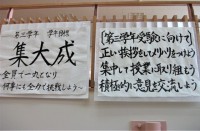 第三学年 学年目標
集大成
全員で一丸となり
何事にも全力で挑戦しよう～
【第三学年受験に向けて】
正しい挨拶をしてメリハリをつけよう
集中して授業に取り組もう
積極的に意見を交流しよう